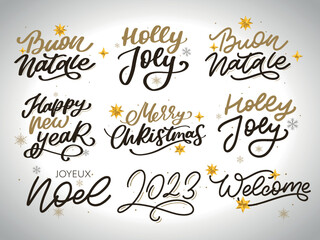 Buon
Natale
Holly
Joly
Buon
Natale
Happy
new
year
Merry
Christmas
Holly
Joly
JOYEUX
Noel
2023
Welcome